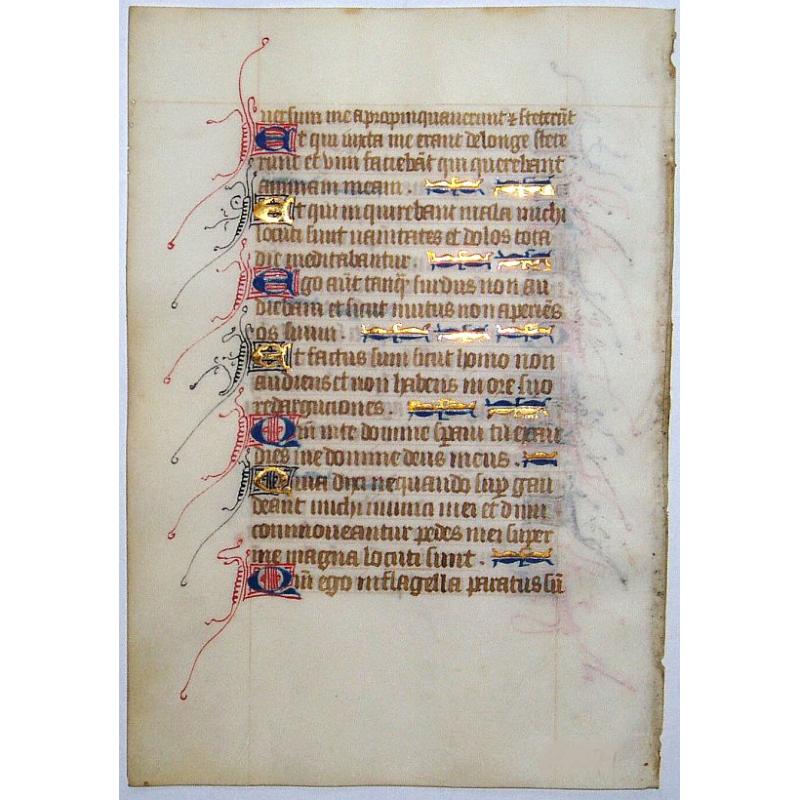 uersum me apropinquauerunt ⁊ steterūt
Et qui iuxta me erant delonge stete
runt et vim faciebāt qui querebant
animam meam.
Et qui inquirebant mala michi
locuti sunt uanitates et dolos tota
die meditabantur.
Ego aūt tanq̄ surdus non au
diebam et sicut mutus non aperiēs
os suum.
Et factus sum sicut homo non
audiens et non habens in ore suo
redargutiones.
Qm̄ in te domine speraui tu exau
dies me domine deus meus.
Quia dixi nequando sup gau
deant michi inimici mei et dum
commoueantur pedes mei super
me magna locuti sunt.
Qm̄ ego in flagella paratus sū